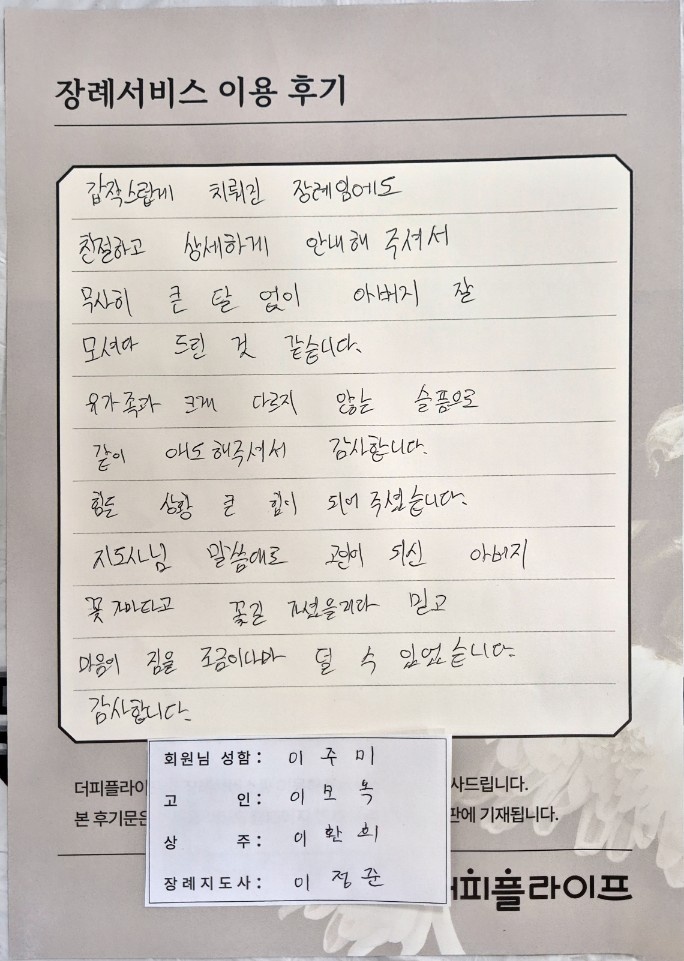 장례서비스 이용 후기
갑작스럽게 치뤄진 장례임에도
친절하고 상세하게 안내해 주셔서
무사히 큰 탈 없이 아버지 잘
모셔다 드린 것 같습니다.
유가족과 크게 다르지 않는 슬픔으로
같이 애도해주셔서 감사합니다.
힘든 상황 큰 힘이 되어 주셨습니다.
지도사님 말씀대로 고인이 되신 아버지
꽃가마타고 꽃길 가셨을거라 믿고
마음의 짐을 조금이나마 덜 수 있었습니다.
감사합니다.
회원님 성함: 이주미
고 인: 이모옥
상 주: 이환희
장례지도사: 이정준
더피플라이 사드립니다.
본 후기문은 판에 기재됩니다.
더피플라이프